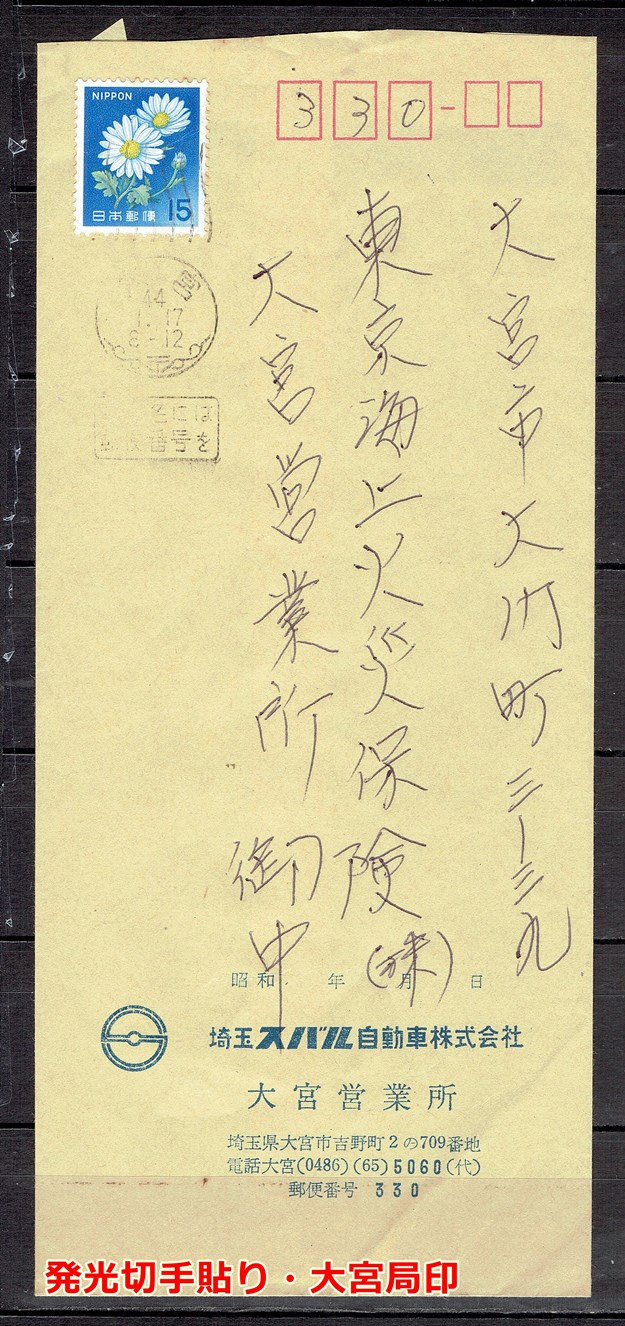 NIPPON
日本郵便 15
330-
大宮市大門町三ー三九
東京海上火災保険(株)
大宮営業所 御中
宮
44
1.17
8-12
名には
郵便番号を
昭和 年 月 日
埼玉スバル自動車株式会社
大宮営業所
埼玉県大宮市吉野町2の709番地
電話大宮(0486)(65)5060(代)
郵便番号 330
発光切手貼り・大宮局印